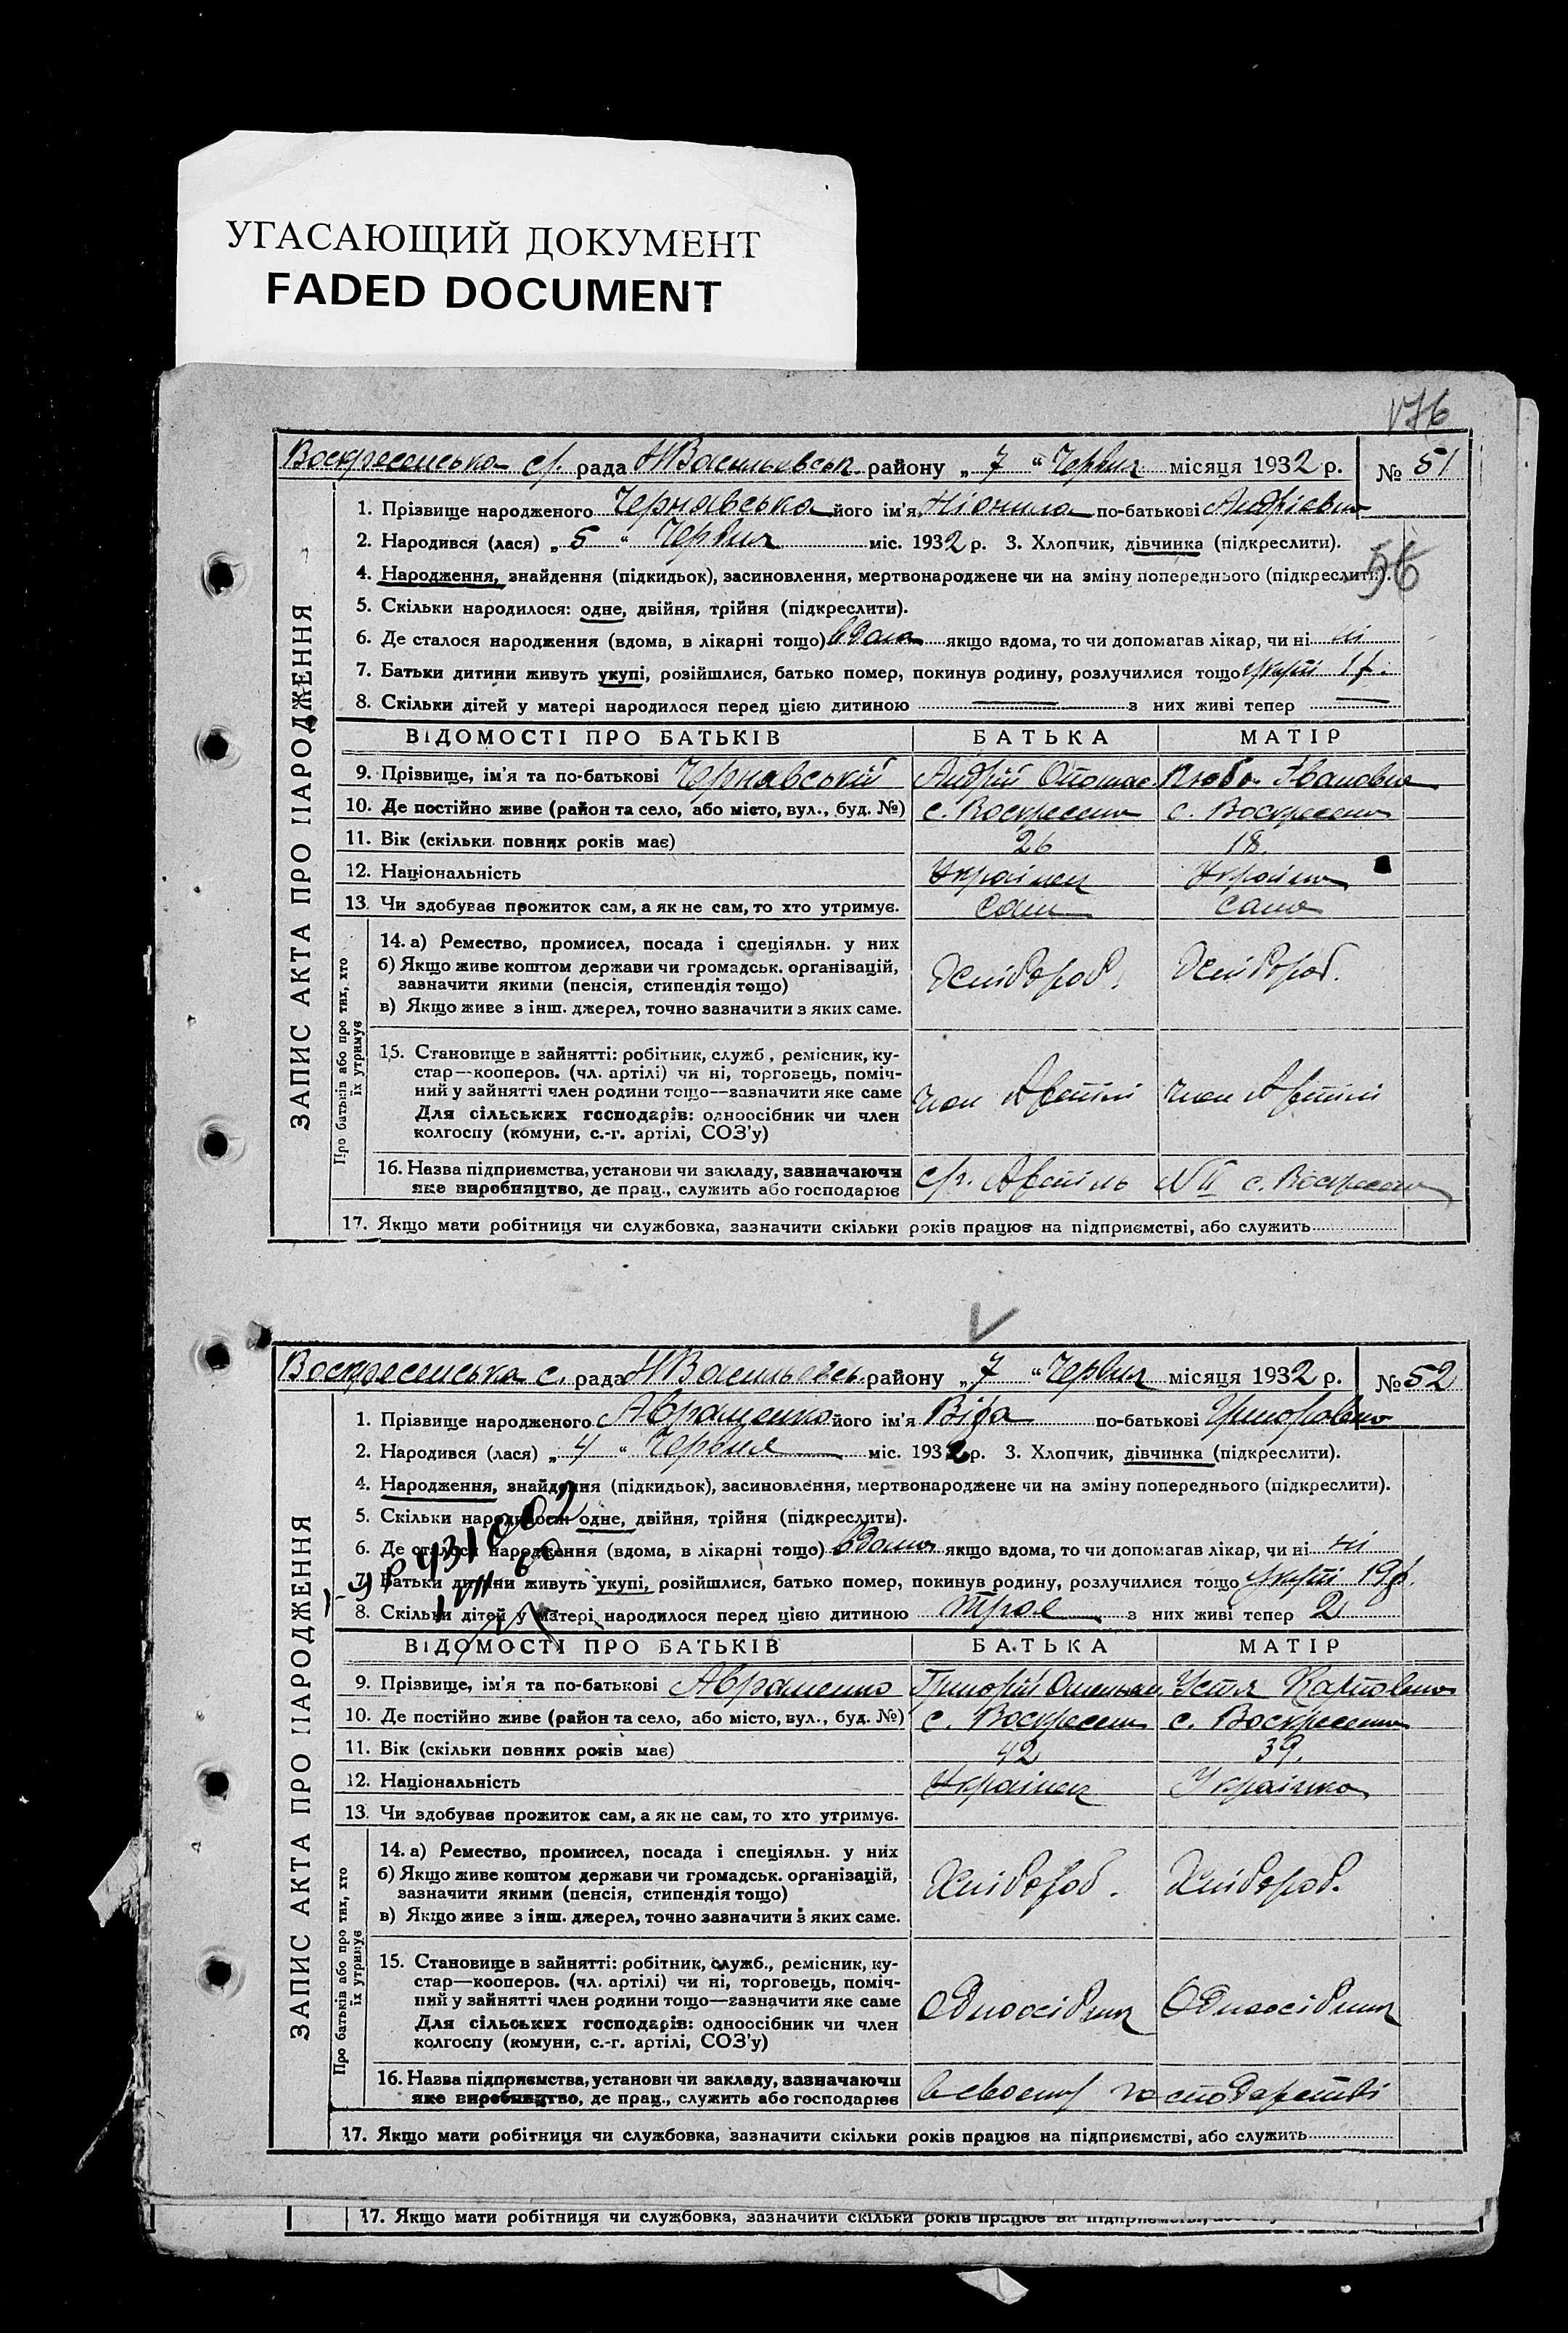 УГАСАЮЩИЙ ДОКУМЕНТ
FADED DOCUMENT
176
Воскресенська с/р. рада НВасильевськ району „ 7 “ Червня місяця 1932 р. № 51
ЗАПИС АКТА ПРО НАРОДЖЕННЯ
1. Прізвище народженого Чернявська його ім'я Ніонила по-батькові Андрієвна
2. Народився (лася) „ 5 “ Червня міс. 1932 р. 3. Хлопчик, дівчинка (підкреслити).
56
4. Народження, знайдення (підкидьок), засиновлення, мертвонароджене чи на зміну попереднього (підкреслити).
5. Скільки народилося: одне, двійня, трійня (підкреслити).
6. Де сталося народження (вдома, в лікарні тощо) вдома якщо вдома, то чи допомагав лікар, чи ні ні
7. Батьки дитини живуть укупі, розійшлися, батько помер, покинув родину, розлучилися тощо укупі 1 р.
8. Скільки дітей у матері народилося перед цією дитиною — з них живі тепер —
ВІДОМОСТІ ПРО БАТЬКІВ БАТЬКА МАТІР
9. Прізвище, ім'я та по-батькові Чернявській Андрій Люба Івановна
10. Де постійно живе (район та село, або місто, вул., буд. №) с. Воскресенка с. Воскресенка
11. Вік (скільки повних років має) 26 18.
12. Національність Українец Українка
13. Чи здобував прожиток сам, а як не сам, то хто утримує. Сам Сама
Про батьків або про тих, хто їх утримує
14. а) Ремество, промисел, посада і спеціяльн. у них
б) Якщо живе коштом держави чи громадськ. організацій,
зазначити якими (пенсія, стипендія тощо)
Хлібороб. Хлібороб.
в) Якщо живе з інш. джерел, точно зазначити з яких саме.
15. Становище в зайнятті: робітник, служб., ремісник, ку-
стар—кооперов. (чл. артілі) чи ні, торговець, поміч-
ний у зайнятті член родини тощо—зазначити яке саме
член Артілі член Артілі
Для сільських господарів: одноосібник чи член
колгоспу (комуни, с.-г. артілі, СОЗ'у)
16. Назва підприємства, установи чи закладу, зазначаючи
яке виробництво, де прац., служить або господарює
с/г. Артіль № II с. Воскресенка
17. Якщо мати робітниця чи службовка, зазначити скільки років працює на підприємстві, або служить
Воскресенська с. рада НВасильевськ. району „ 7 “ Червня місяця 1932 р. № 52
ЗАПИС АКТА ПРО НАРОДЖЕННЯ
1. Прізвище народженого Авраменко його ім'я Віра по-батькові Григоровна
2. Народився (лася) „ 4 “ Червня міс. 1932 р. 3. Хлопчик, дівчинка (підкреслити).
4. Народження, знайдення (підкидьок), засиновлення, мертвонароджене чи на зміну попереднього (підкреслити).
5. Скільки народилося: одне, двійня, трійня (підкреслити).
6. Де сталося народження (вдома, в лікарні тощо) вдома якщо вдома, то чи допомагав лікар, чи ні ні
7. Батьки дитини живуть укупі, розійшлися, батько помер, покинув родину, розлучилися тощо укупі 19 р.
8. Скільки дітей у матері народилося перед цією дитиною троє з них живі тепер 2
ВІДОМОСТІ ПРО БАТЬКІВ БАТЬКА МАТІР
9. Прізвище, ім'я та по-батькові Авраменко Григорій Омельян. Устя Карповна
10. Де постійно живе (район та село, або місто, вул., буд. №) с. Воскресенк с. Воскресенка
11. Вік (скільки повних років має) 42 39.
12. Національність Українец Українка
13. Чи здобував прожиток сам, а як не сам, то хто утримує.
Про батьків або про тих, хто їх утримує
14. а) Ремество, промисел, посада і спеціяльн. у них
б) Якщо живе коштом держави чи громадськ. організацій,
зазначити якими (пенсія, стипендія тощо)
Хлібороб. Хлібороб.
в) Якщо живе з інш. джерел, точно зазначити з яких саме.
15. Становище в зайнятті: робітник, служб., ремісник, ку-
стар—кооперов. (чл. артілі) чи ні, торговець, поміч-
ний у зайнятті член родини тощо—зазначити яке саме
Одноосібник Одноосібник
Для сільських господарів: одноосібник чи член
колгоспу (комуни, с.-г. артілі, СОЗ'у)
16. Назва підприємства, установи чи закладу, зазначаючи
яке виробництво, де прац., служить або господарює
в своєму господарстві
17. Якщо мати робітниця чи службовка, зазначити скільки років працює на підприємстві, або служить
17. Якщо мати робітниця чи службовка, зазначити скільки років працює на підприємстві,